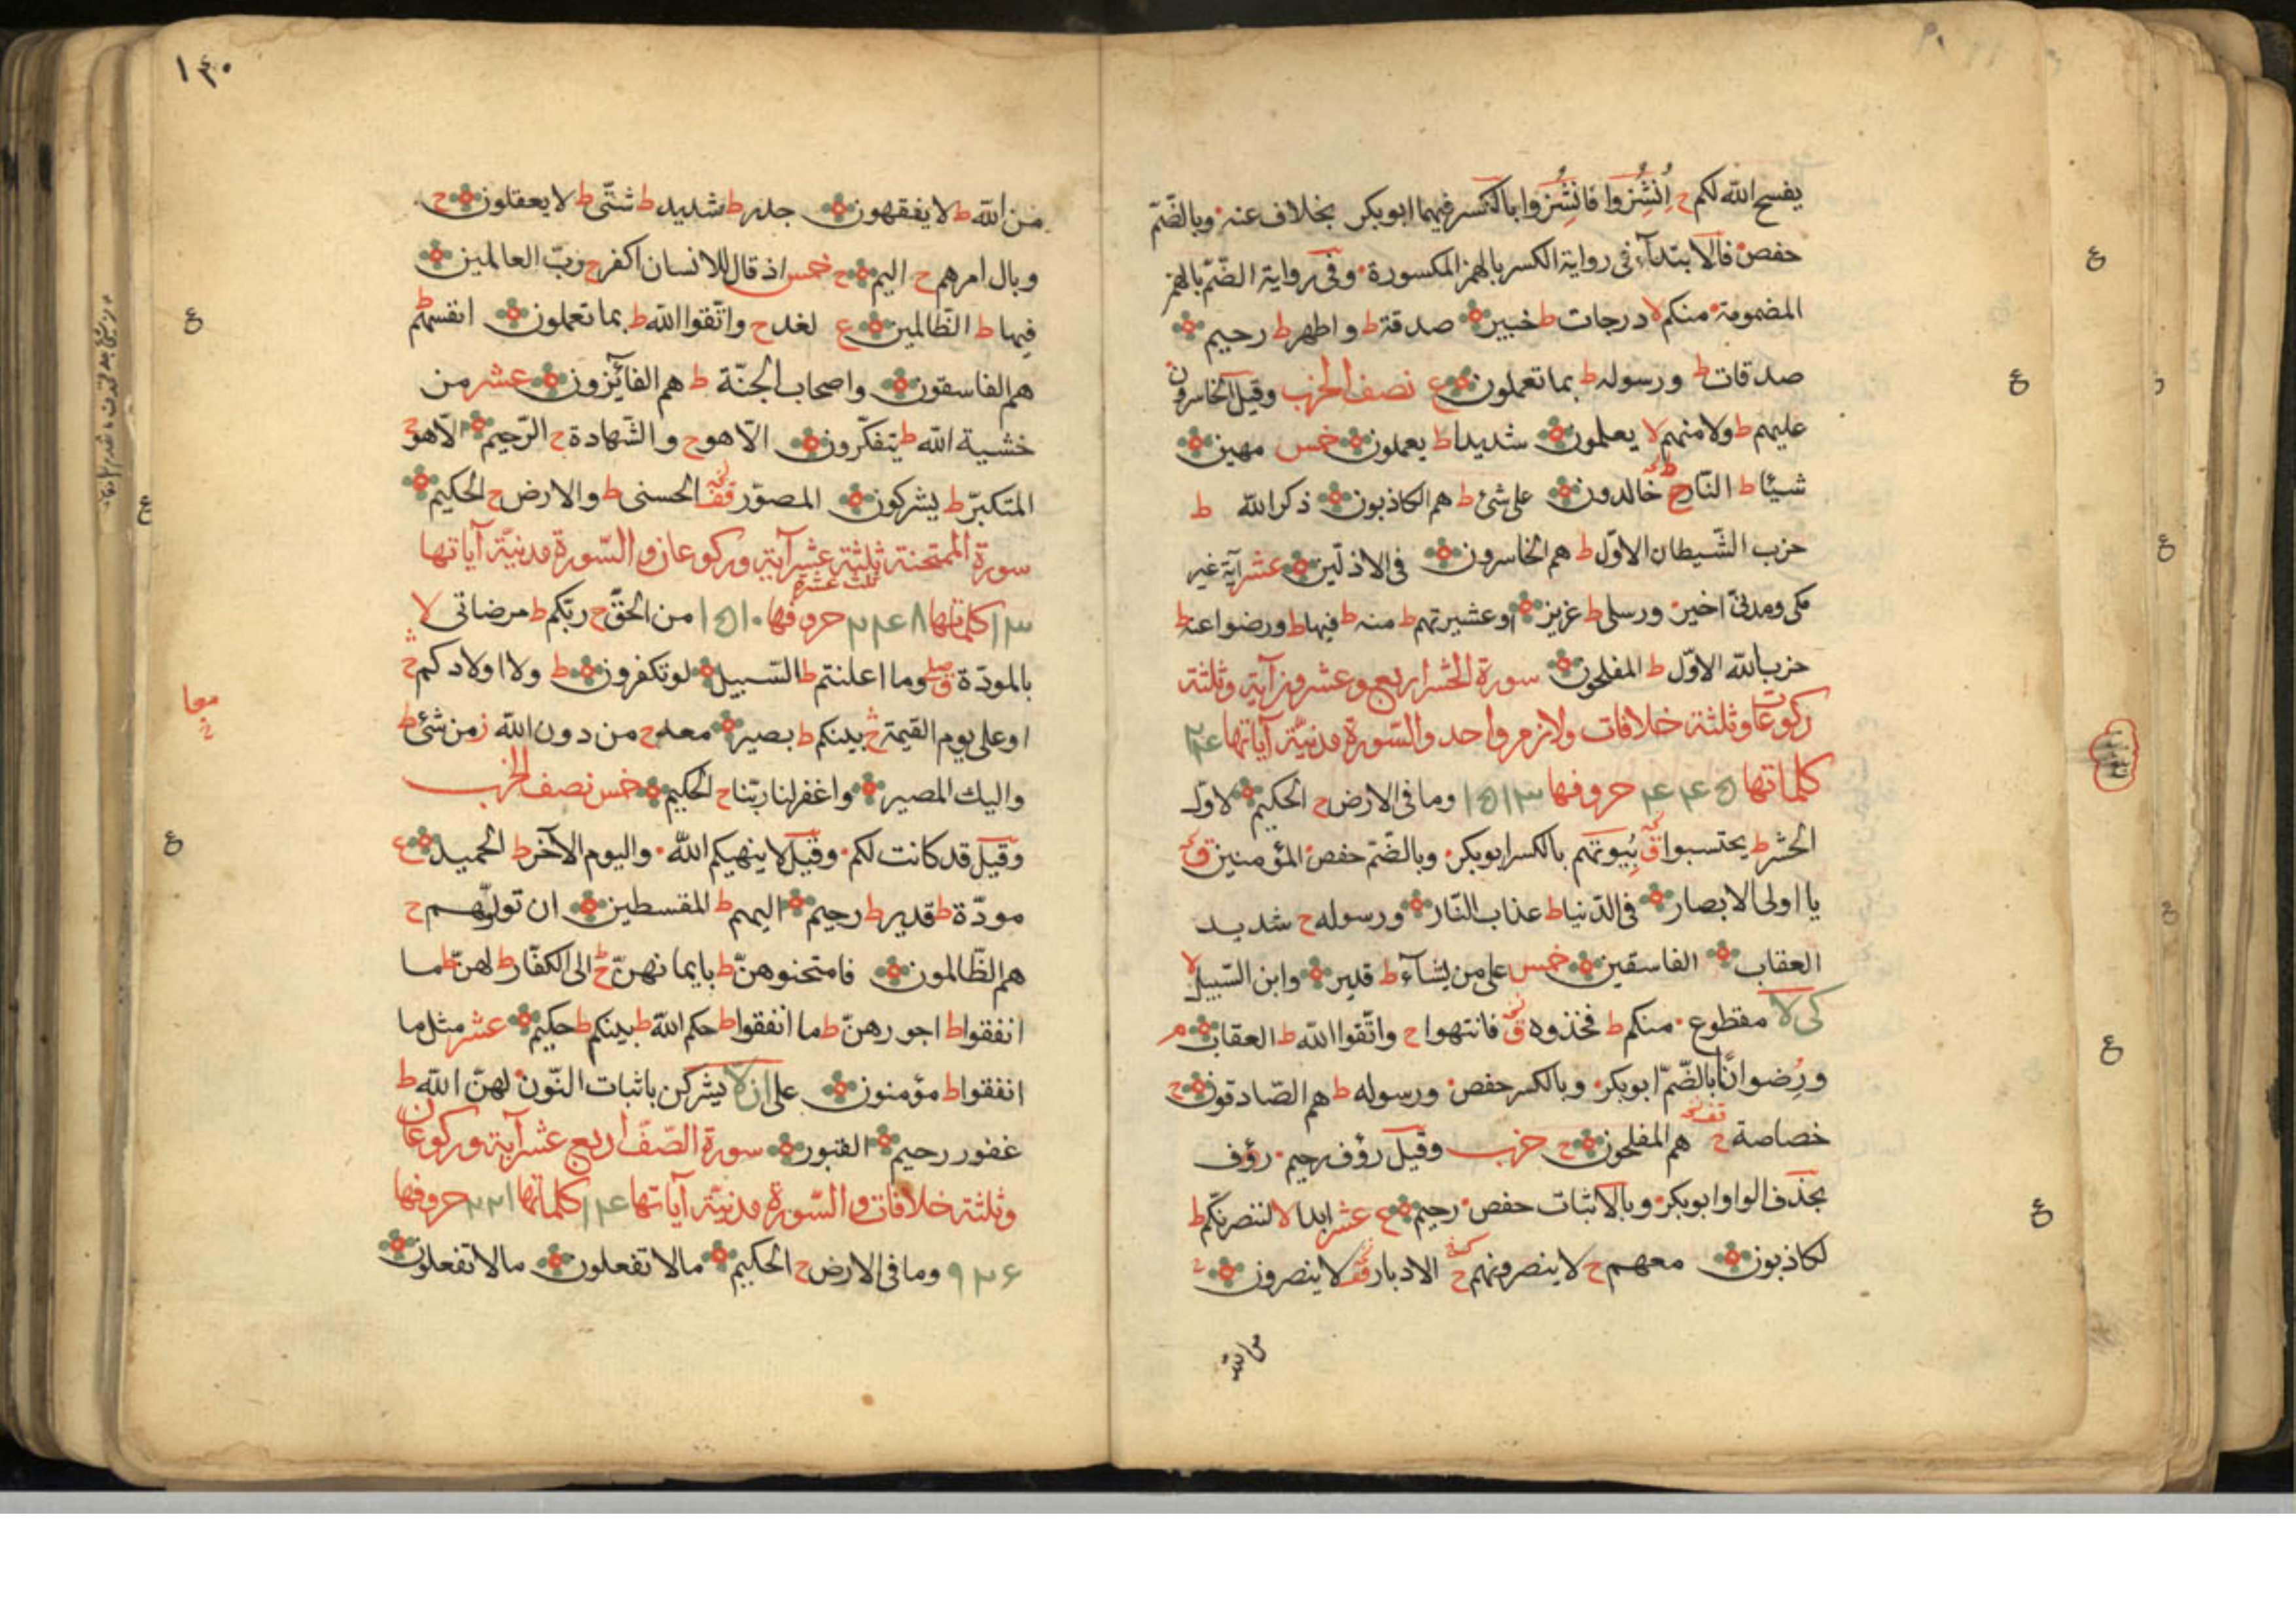 يفسح الله لكم ح اُنْشُِزوا فَانْشُِزوا بالكسر فيهما ابوبكر بخلاف عنه وبالضّمّ
حفص فالابتداء فى رواية الكسر بالهمز المكسورة وفى رواية الضّمّ بالهمز
المضمومة منكم لا درجات ط خبير صدقة ط واطهر ط رحيم
صدقات ط ورسوله ط بما تعملون ع نصف الحزب وقيل الخاسرون
عليهم ط ولا منهم لا يعلمون شديدا ط يعملون خمس مهين
شيئا ط النّار ط خالدون على شئ ط هم الكاذبون ذكر الله ط
حزب الشّيطان الاوّل ط هم الخاسرون فى الاذلّين عشر آية غير
مكى ومدنىّ اخير ورسلى ط عزيز او عشيرتهم ط منه ط فيها ط ورضوا عنه ط
حزب الله الاوّل ط المفلحون سورة الحشر اربع وعشرون آية وثلثة
ركوعات وثلثة خلافات ولازم واحد والسّورة مدنيّة آياتها ۲۴
كلماتها ۴۴۵ حروفها ۱۵۱۳ وما فى الارض ح الحكيم لاوّل
الحشر ط يحتسبوا ق بُِيوتهم بالكسر ابوبكر وبالضّمّ حفص المؤمنين ق
يا اولى الابصار فى الدّنيا ط عذاب النّار ورسوله ح شديد
العقاب الفاسقين خمس على من يشآء ط قدير وابن السّبيل لا
كى لا مقطوع منكم ط فخذوه ق فانتهوا ح واتّقوا الله ط العقاب م
ورُِضوانًا بالضّمّ ابوبكر وبالكسر حفص ورسوله ط هم الصّادقون ح
خصاصة ط قف هم المفلحون ح حزب وقيل رؤف رحيم رؤف
بحذف الواو ابوبكر وبالاثبات حفص رحيم ع عشر ابدا لا لننصرنّكم ط
لكاذبون معهم ح لا ينصرونهم ح الادبار قف لا ينصرون
من الله
۱۴۰
من الله ط لا يفقهون جدر ط شديد ط شتّى ط لا يعقلون ح
وبال امرهم ح اليم ح خمس اذ قال للانسان اكفر ح ربّ العالمين
فيها ط الظّالمين ع لغد ح واتّقوا الله ط بما تعملون انفسهم ط
هم الفاسقون واصحاب الجنّة ط هم الفآئزون عشر من
خشية الله ط يتفكّرون الّا هو ح والشّهادة ح الرّحيم الّا هو ح
المتكبّر ط يشركون المصوّر قف الحسنى ط والارض ح الحكيم
سورة الممتحنة ثلثة عشر آية وركوعان والسّورة مدنيّة آياتها
ثلث عشرة
۱۳ كلماتها ۳۴۸ حروفها ۱۵۱۰ من الحقّ ح ربّكم ط مرضاتى لا
بالمودّة ق وما اعلنتم ط السّبيل لو تكفرون ط ولا اولادكم ح
او على يوم القيمة ح بينكم ط بصير معه ح من دون الله ز من شئ ط
واليك المصير واغفر لنا ربّنا ح الحكيم خمس نصف الحزب
وقيل قد كانت لكم وقيل لا ينهيكم الله واليوم الآخر ط الحميد ع
مودّة ط قدير ط رحيم اليهم ط المقسطين ان تولّوهم ح
هم الظّالمون فامتحنوهنّ ط بايمانهنّ ح الى الكفّار ط لهنّ ط ما
انفقوا ط اجورهنّ ط ما انفقوا ط حكم الله ط بينكم ط حكيم عشر مثل ما
انفقوا ط مؤمنون على ان لا يشركن باثبات النّون لهنّ الله ط
غفور رحيم القبور سورة الصّفّ اربع عشر آية وركوعان
وثلثة خلافات والسّورة مدنيّة آياتها ۱۴ كلماتها ۲۲۱ حروفها
۹۲۶ وما فى الارض ح الحكيم مالا تفعلون مالا تفعلون